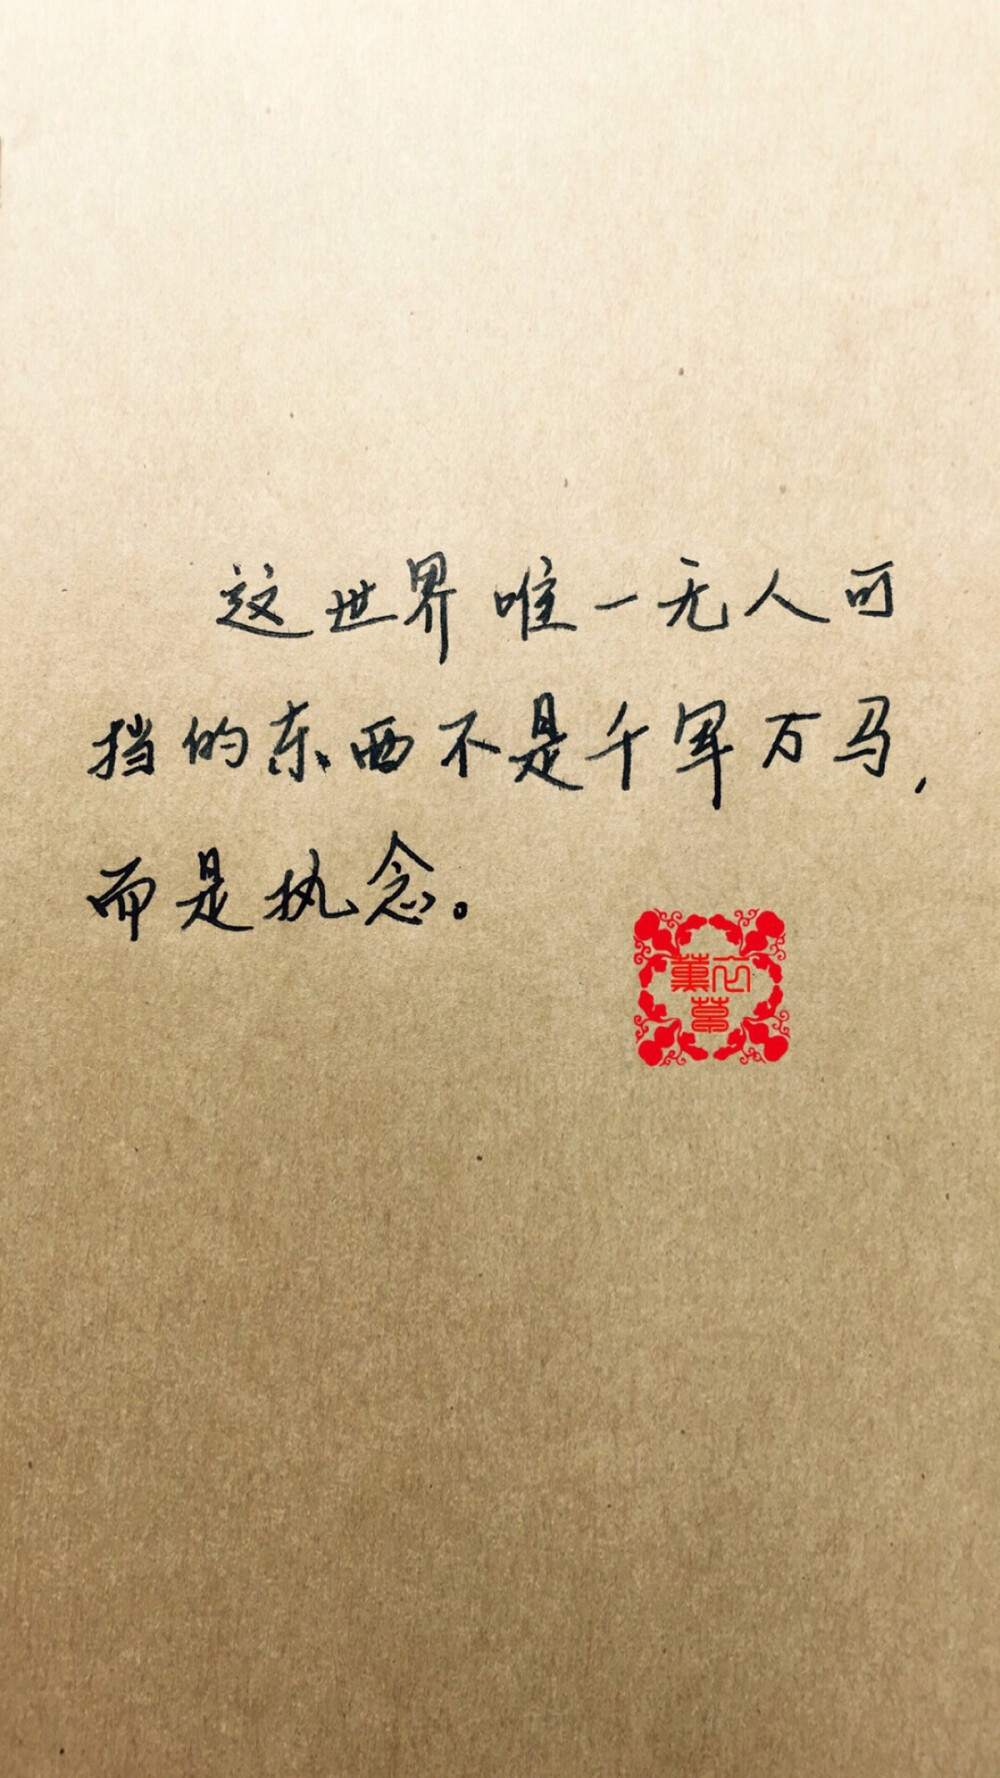 这世界唯一无人可
挡的东西不是千军万马，
而是执念。
薰衣
草